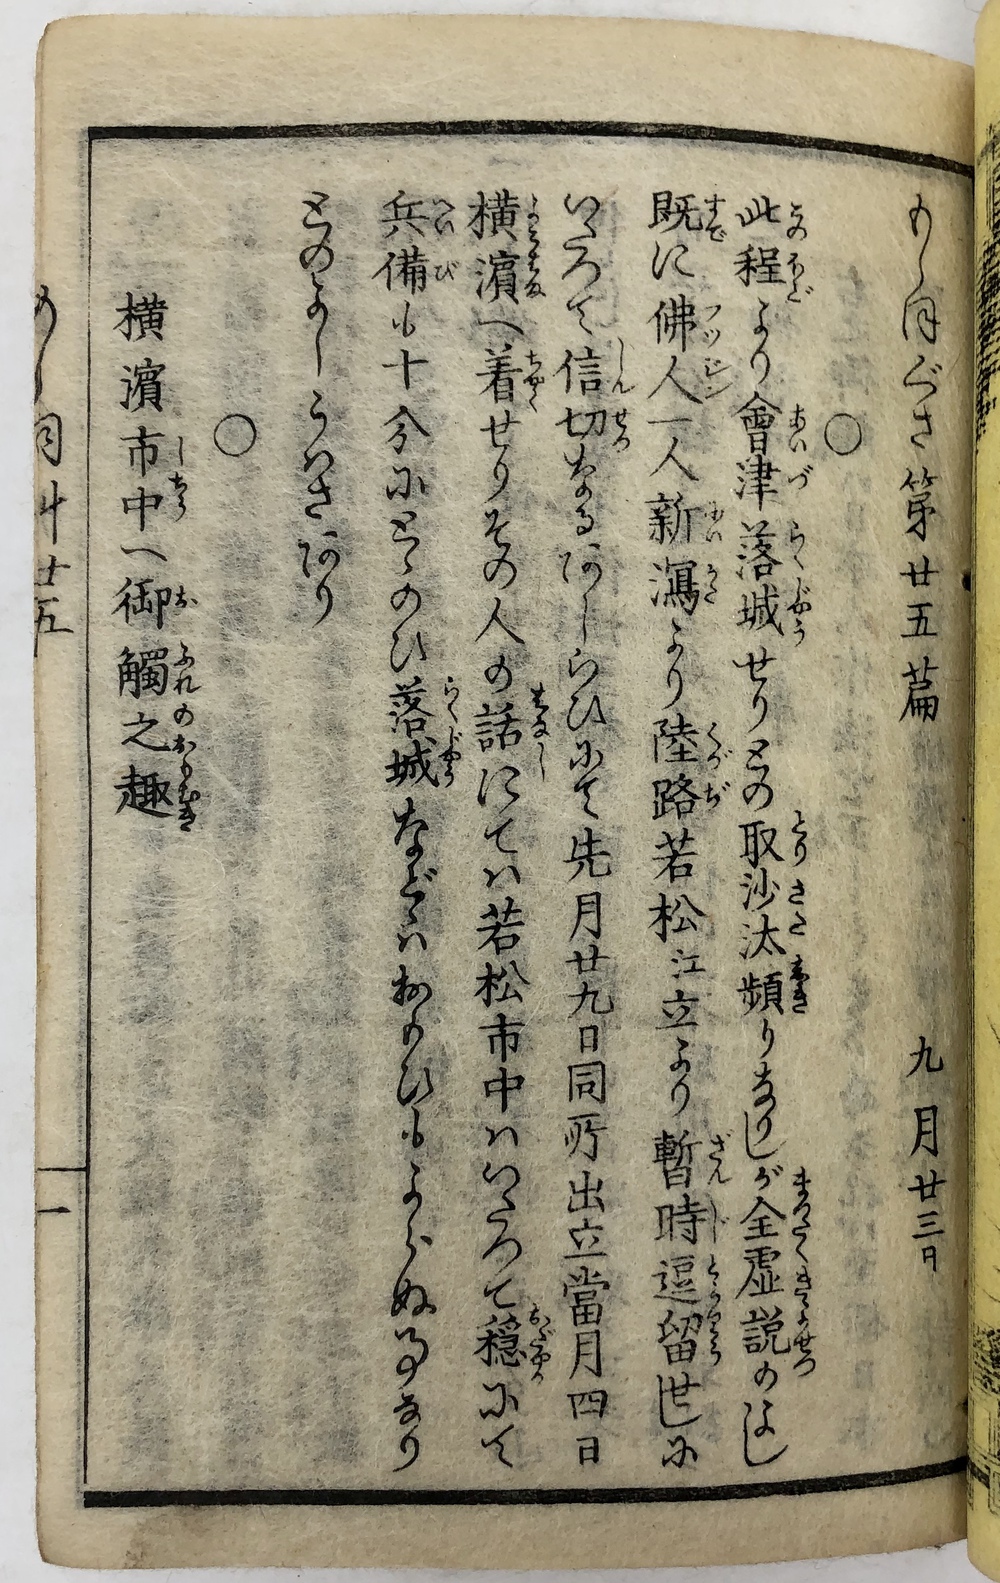 もしほぐさ第廿五篇　九月廿三日
○
此程より會津落城せりとの取沙汰頻りなりしが全虚説のよし
既に佛人一人新瀉より陸路若松江立より暫時逗留せしに
いたつて信切なるあしらひにて先月廿九日同所出立當月四日
横濱へ着せりその人の話にてハ若松市中ハいたつて穏にて
兵備も十分にとゝのひ落城などゝハおもひもよらぬ事なり
とのよしうハさあり
○
横濱市中へ御觸之趣
もし艸廿五
一